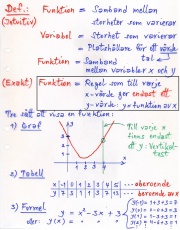 Def.: Funktion = Samband mellan
(Intuitiv) storheter som varierar
Variabel = Storhet som varierar
= Platshållare för ett värde
tal
Funktion = Samband
mellan variabler x och y
(Exakt) Funktion = Regel som till varje
x-värde ger endast ett
y-värde: y = funktion av x
Tre sätt att visa en funktion:
1) Graf
Till varje x
finns endast
ett y: Vertikal-
test
2) Tabell
x -1 0 1 2 3 4 5 ... oberoende
beroende av x
3) Formel y = x² - 3x + 3
eller: y(x) =